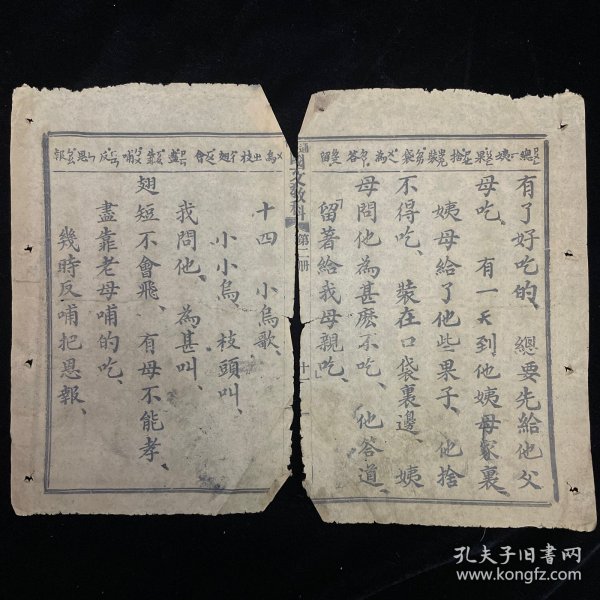 總姨果捨裝袋為答留
有了好吃的、總要先給他父
母吃、有一天到他姨母家裏、
姨母給了他些果子、他捨
不得吃、裝在口袋裏邊、姨
母問他為甚麽不吃、他答道、
「留著給我母親吃、」
國文教科 第二冊
十
為枝翅會盡靠哺反恩報
十四 小烏歌、
小小烏、枝頭叫、
我問他、為甚叫、
翅短不會飛、有母不能孝、
盡靠老母哺的吃、
幾時反哺把恩報、
孔夫子旧书网
www.kongfz.com